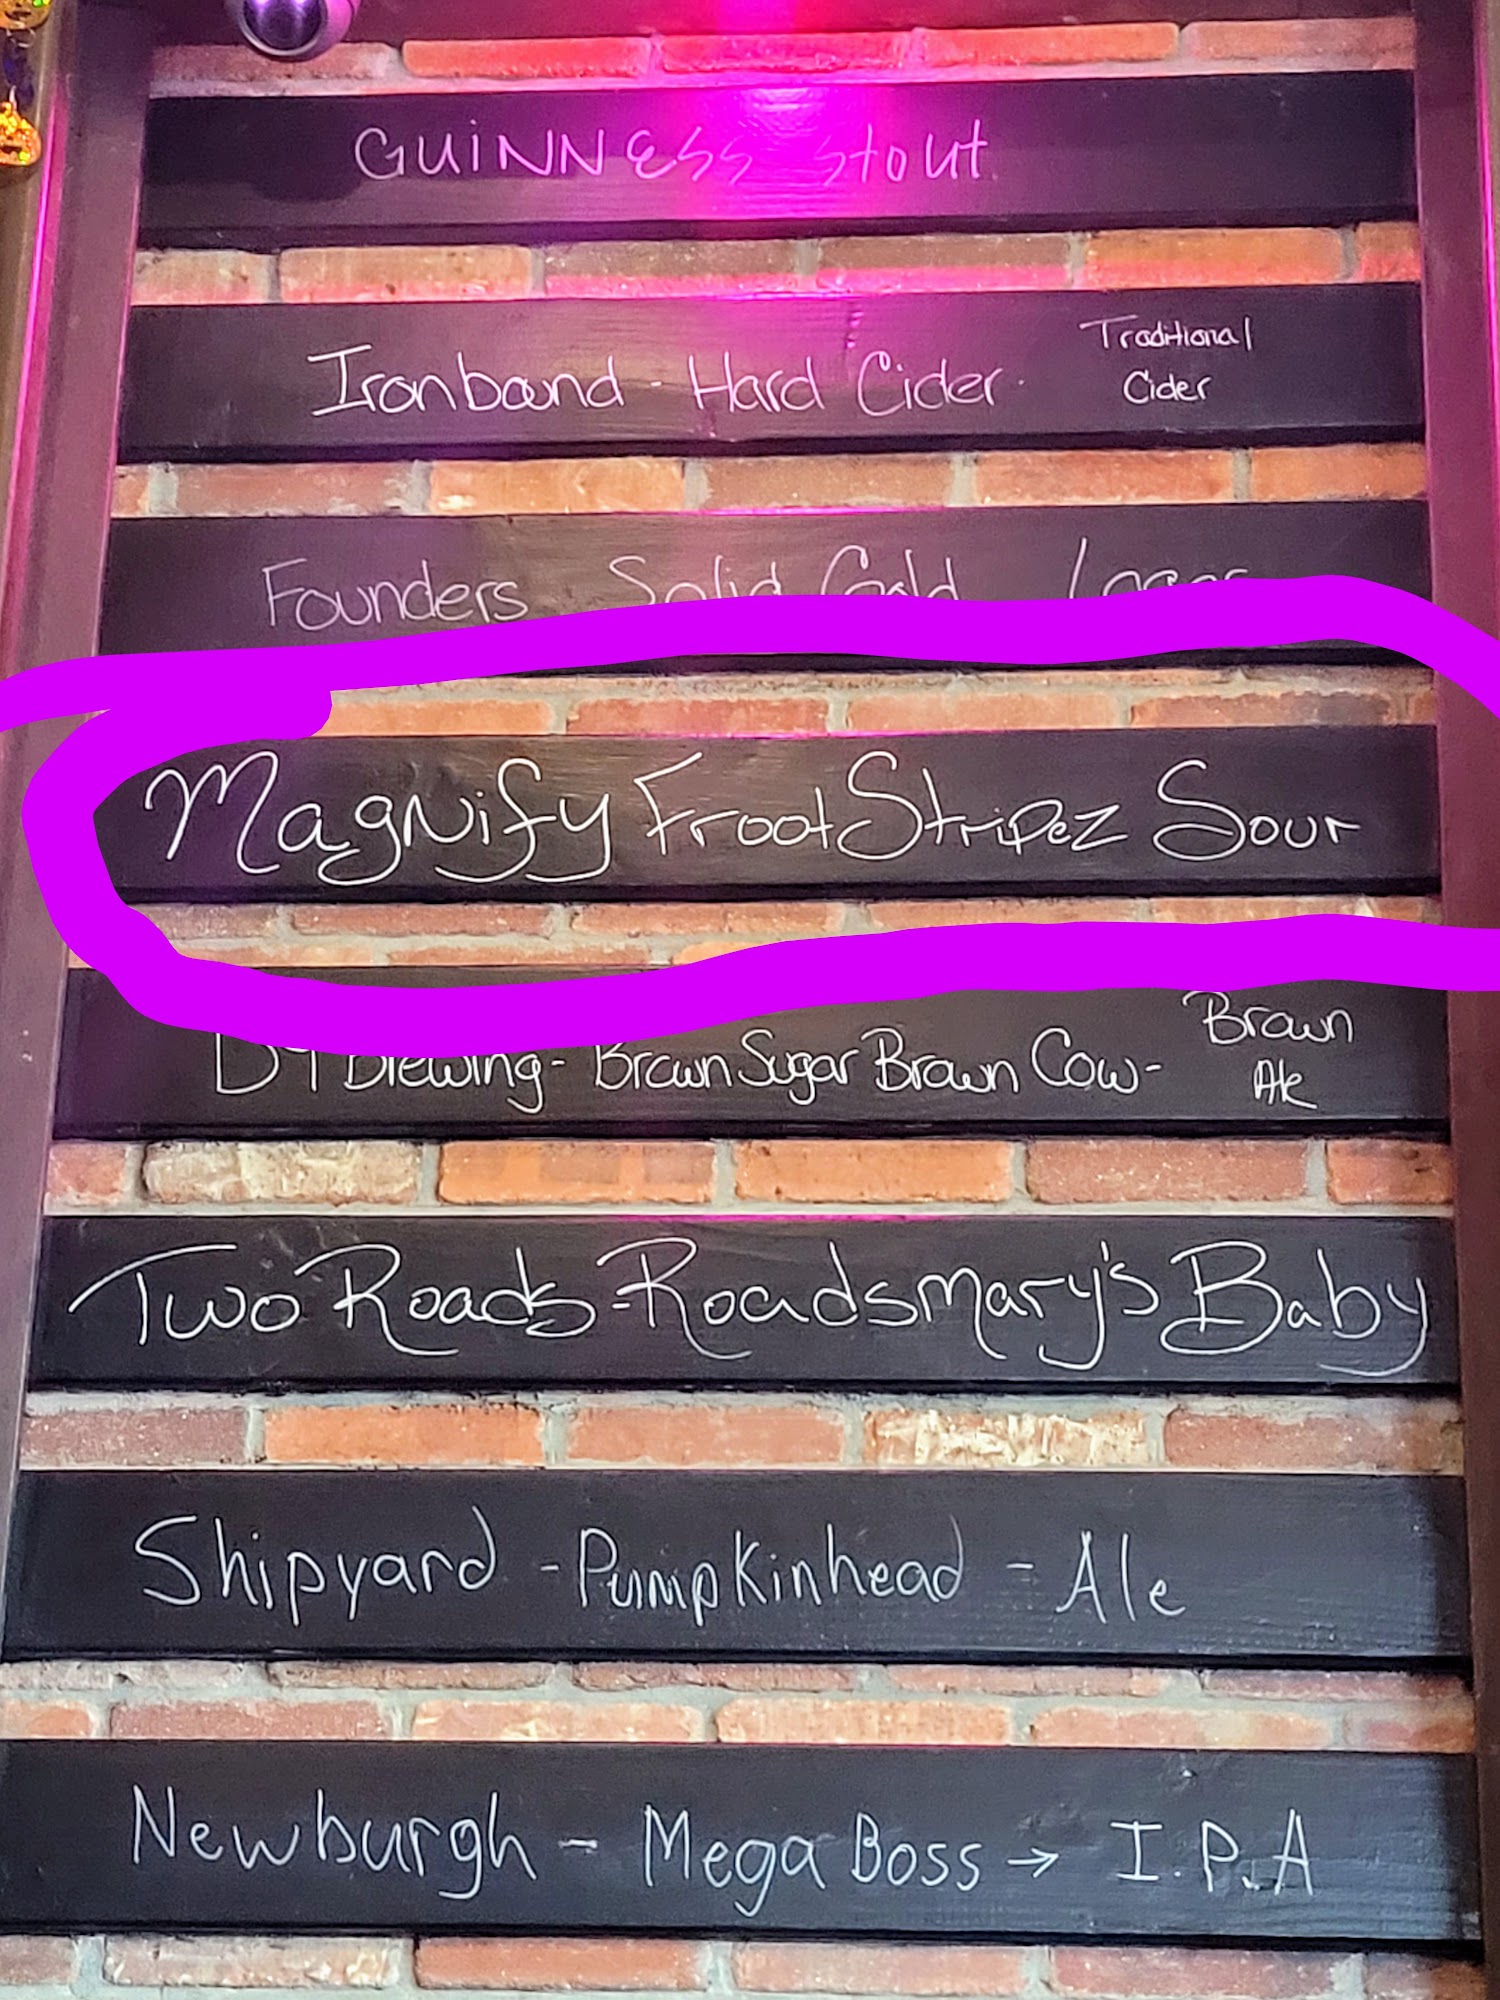 GUiNNESS stout
Ironbound - Hard Cider - Traditional Cider
Founders Solid Gold Lager
Magnify Froot Stripez Sour
Brewing - Brown Sugar Brown Cow - Brown Ale
Two Roads - Roadsmary's Baby
Shipyard - Pumpkinhead - Ale
Newburgh - Mega Boss → I.P.A